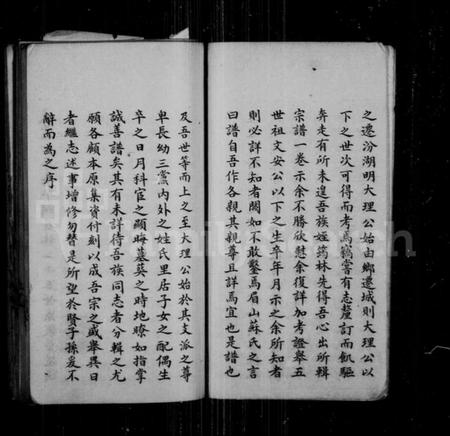 之遷汾湖明大理公始由鄉遷城則大理公以
下之世次可得而考焉竊嘗有志釐訂而飢驅
奔走有所未遑吾族姪筠林先得吾心出所輯
宗譜一卷示余不勝欣慰余復詳加考證舉五
世祖文安公以下之生卒年月示之余所知者
則必詳不知者闕如不敢鑿焉眉山蘇氏之言
曰譜自吾作各親其親尊且詳焉宜也是譜也
及吾世等而上之至大理公始於其支派之尊
卑長幼三黨內外之姓氏里居子女之配偶生
卒之日月科宦之顯晦墓葬之時地暸如指掌
誠善譜矣其有未詳待吾族同志者分輯之尤
願各顧本原集資付刻以成吾宗之盛舉異日
者繼志述事增修勿替是所望於賢子孫爰不
辭而為之序